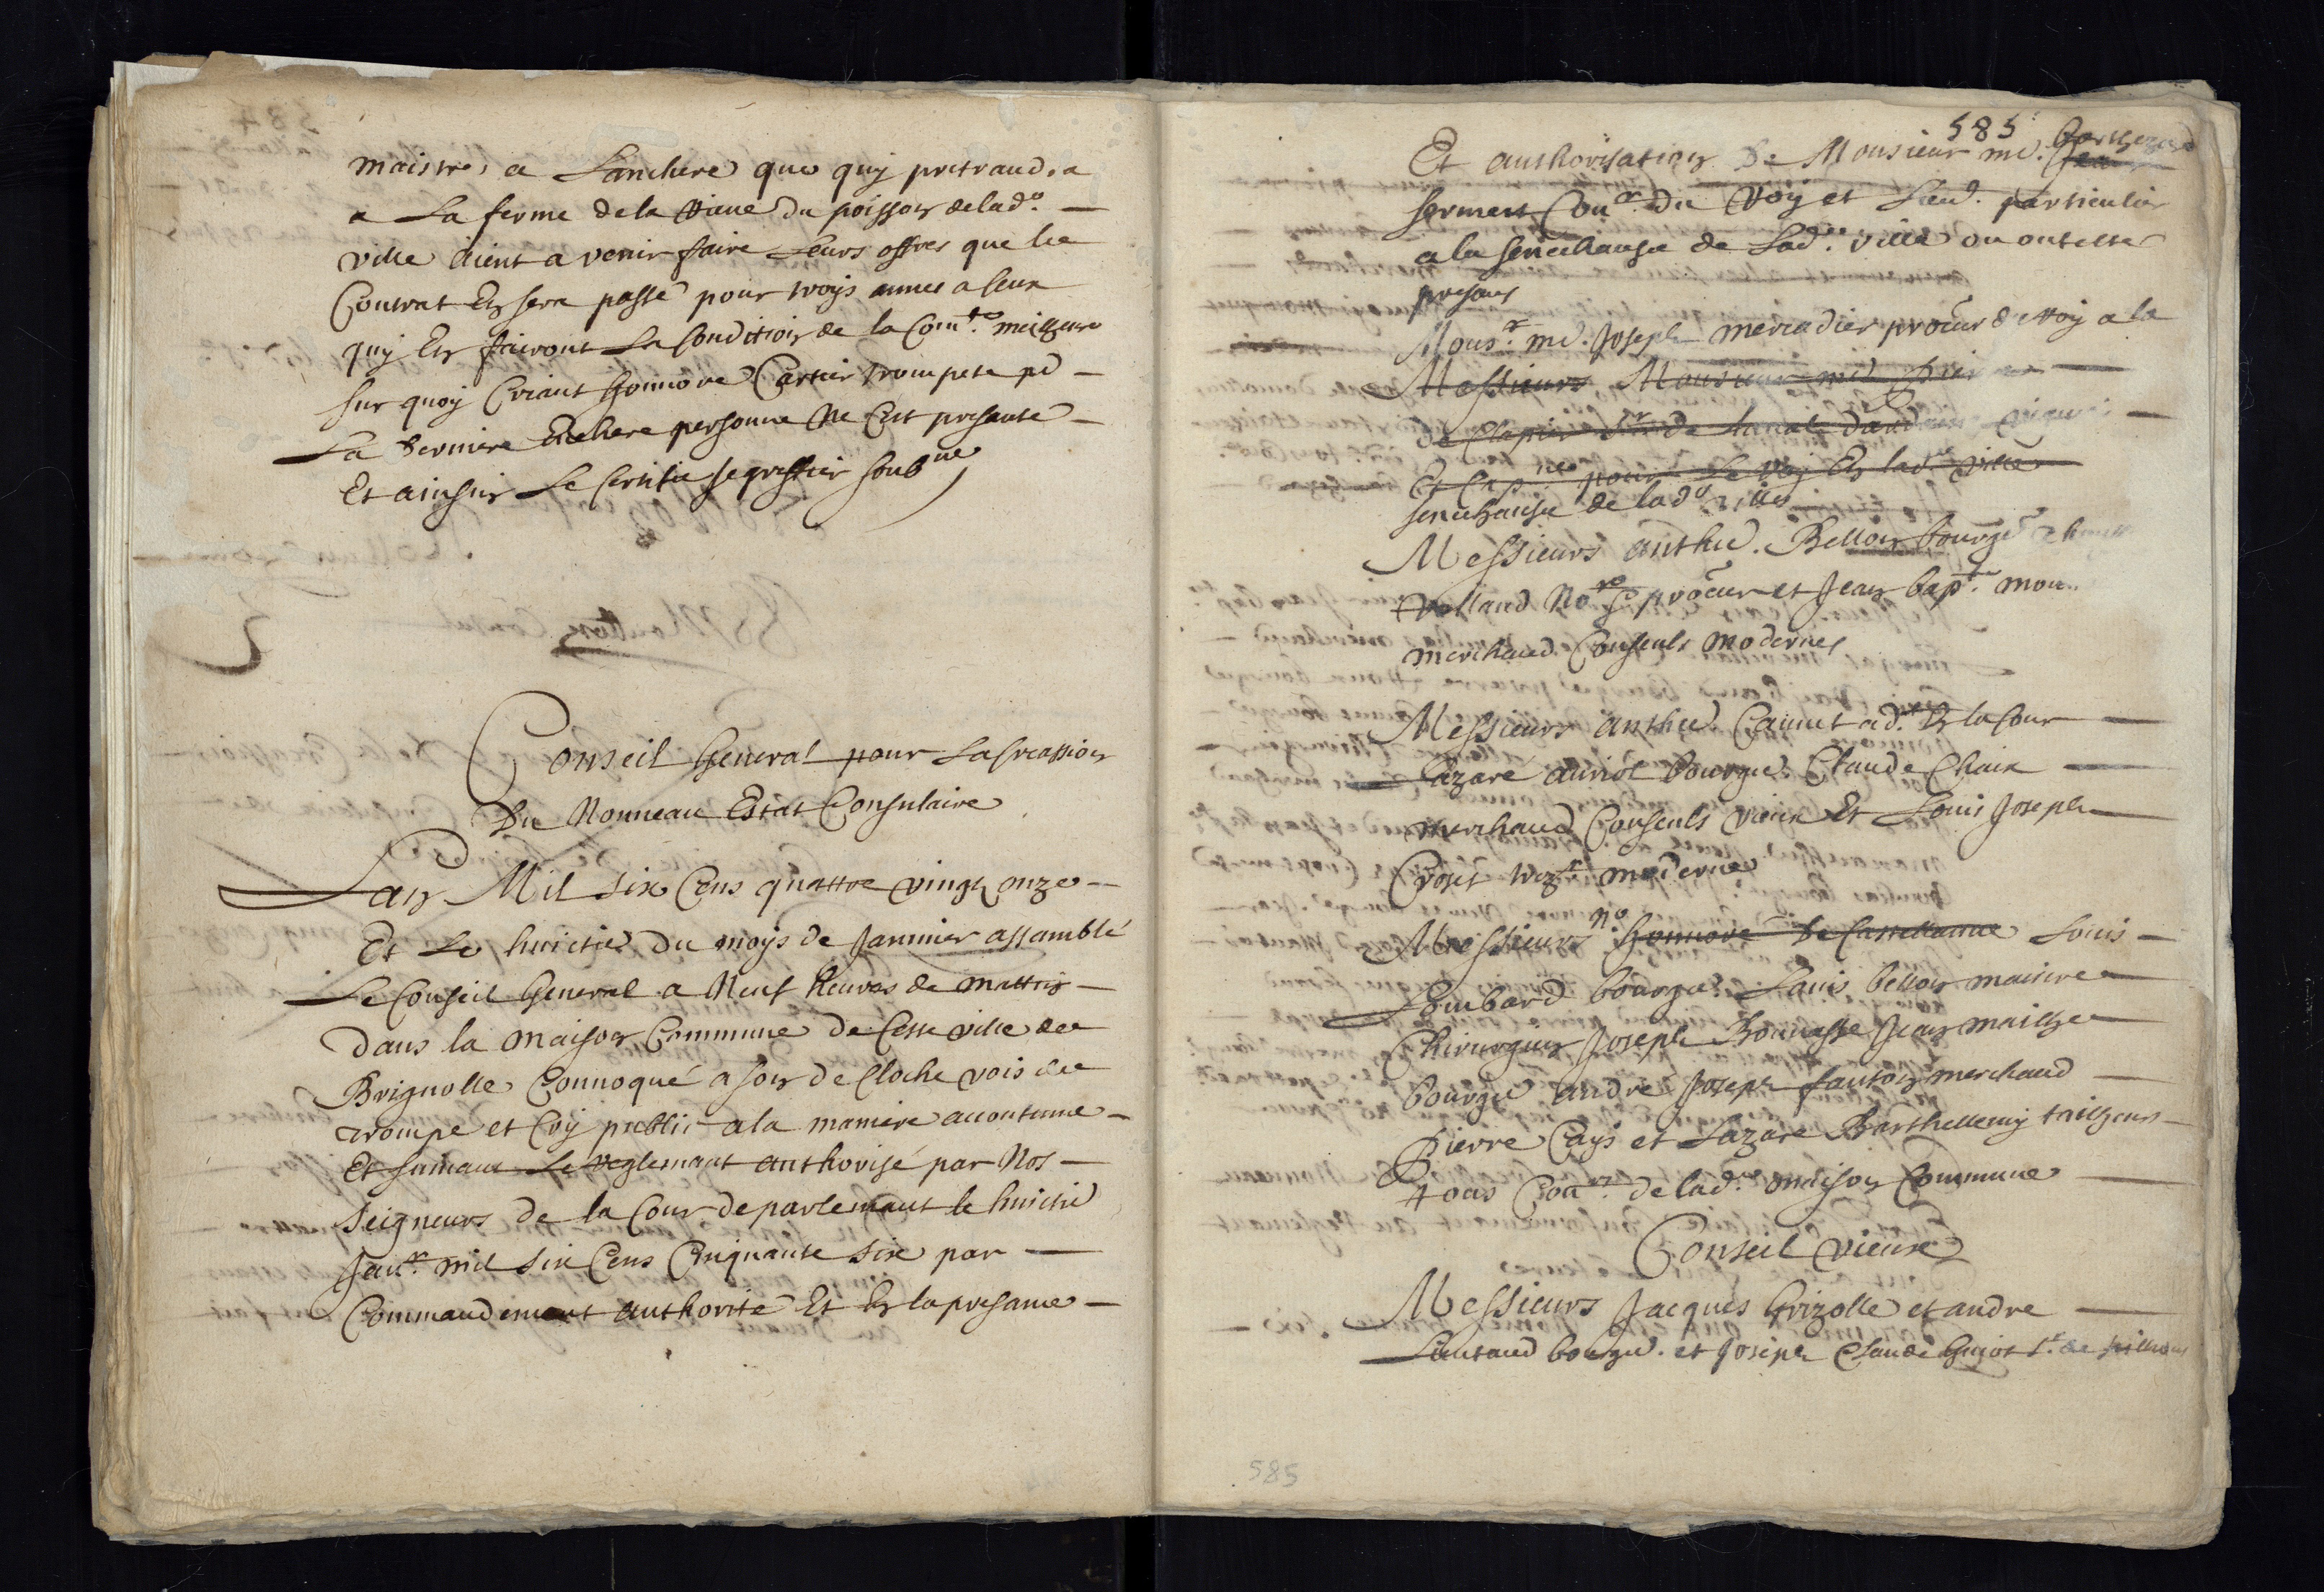 maistre a Lanchere que quy pretraud.a
a La ferme de la Reue du poisson de lad.e
ville aient a venir faire Leurs offres que le
Contrat En sera passé pour troys annees a seux
quy En fairont La Condittion de la Com.te meilleure
sur quoy Criant honnore Cartier trompete pd
La derniere Enchere personne ne Cest presanté
Et ainsin Le Certifie Je greffier soub.ne
Conseil General pour La Creassion
Du Nouueau Estat Consulaire
Lan Mil six Cens quattre vingt onze
Et Le huictie. du moys de Januier assamblé
Le Conseil General a Neuf heures de mattin
Dans la maison Commune de Cette ville de
Brignolle Conuoqué a son de Cloche vois de
trompe et Cry public a la maniere accoutume
Et suiuant Le reglemant authorisé par Nos
Seigneurs de la Cour de parlemant le huictie
Jan.er mil six Cens Cinquante six par
Commandemant authorité Et En la presance
585
Et authorisation De Monsieur me.
serment Con.er du Roy et Lieut. particulier
a la senechaussee de Lad.e ville ou ont este
presans
Mons.r me. Joseph mercadier procur du roy a la
Messieurs Monsieur me
de Clapier
Et Cap.ne pour Le roy En lad.e ville
senechausee de lad.e ville
Messieurs anthoe. Bellon bourge.
Rolland No.re et procur et Jean bap.te mou
merchand Consuls modernes
Messieurs anthoe. Caunet ad.t En la Cour
Lazare auriol bourge. Claude Chaix
merchand Consuls vieux Et Louis Joseph
Crozet trez.er moderne
Messieurs n.e honnore de Castellanne Louis
Lombard bourge. Louis bellon maistre
Chirurgien Joseph Bonnasse Jean maille
bourge andre Joseph fanton merchand
Pierre Cays et Lazare Barthellemy tailleur
tous Con.ers de lad.e maison Commune
Conseil vieux
Messieurs Jacques Grizolle et andre
Lautaud bourge. et Joseph Claude Guiot s.r de
585